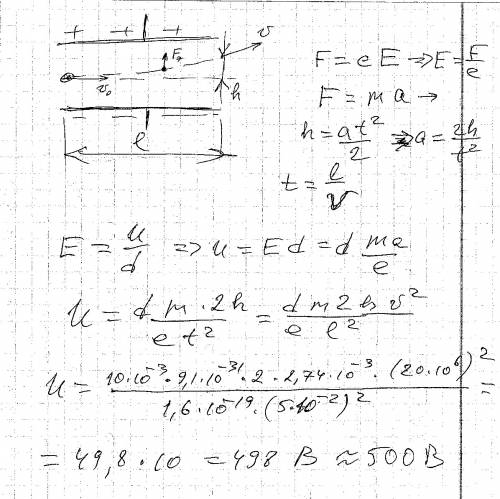 + + +
F₃ v
v₀ h
l
F = eE ⇒ E = F/e
F = ma →
h = at²/2 ⇒ a = 2h/t²
t = l/v
E = u/d ⇒ u = Ed = d ma/e
u = d m · 2h / e t² = d m 2 h v² / e l²
u = 10·10⁻³ · 9,1·10⁻³¹ · 2 · 2,74·10⁻³ · (20·10⁶)² / 1,6·10⁻¹⁹ · (5·10⁻²)² =
= 49,8 · 10 = 498 В ≈ 500 В